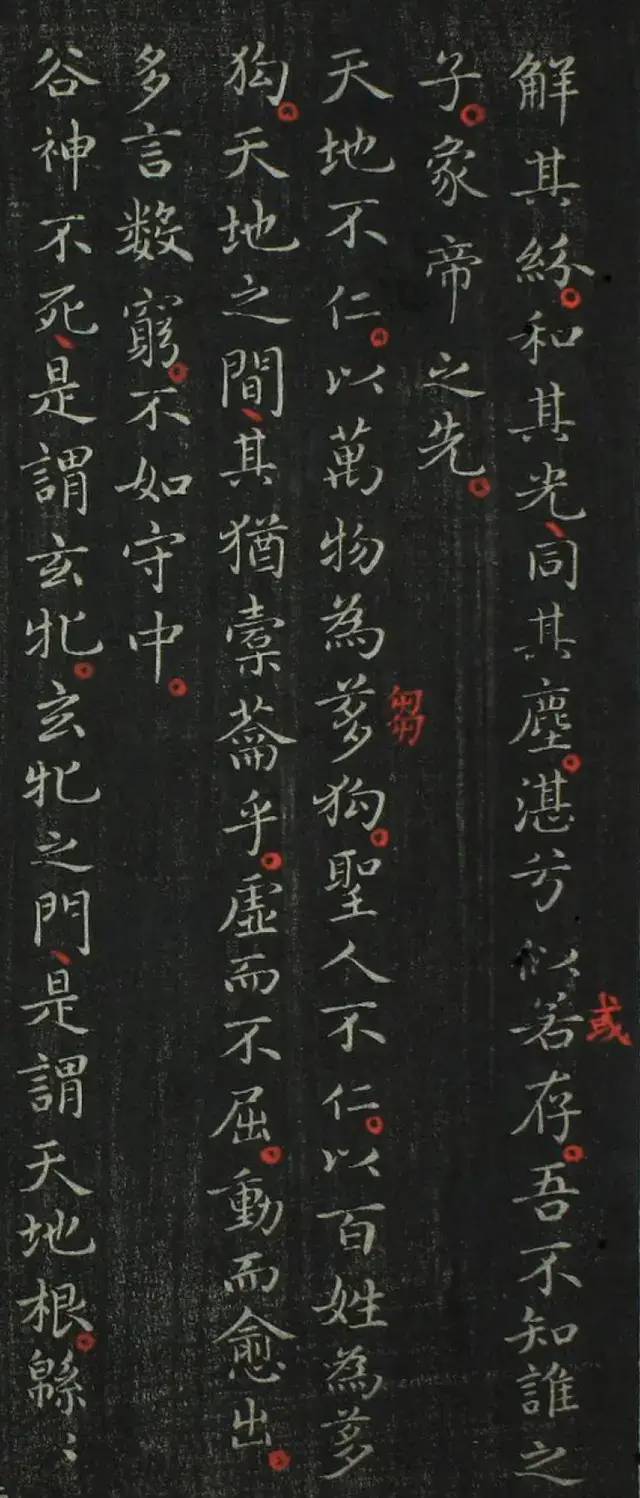 解其紛。和其光、同其塵。湛兮似若存。吾不知誰之
或
子。象帝之先。
芻
天地不仁。以萬物為芻狗。聖人不仁。以百姓為芻
狗。天地之間、其猶橐籥乎。虛而不屈。動而愈出。
多言數窮。不如守中。
谷神不死、是謂玄牝。玄牝之門、是謂天地根。緜〻